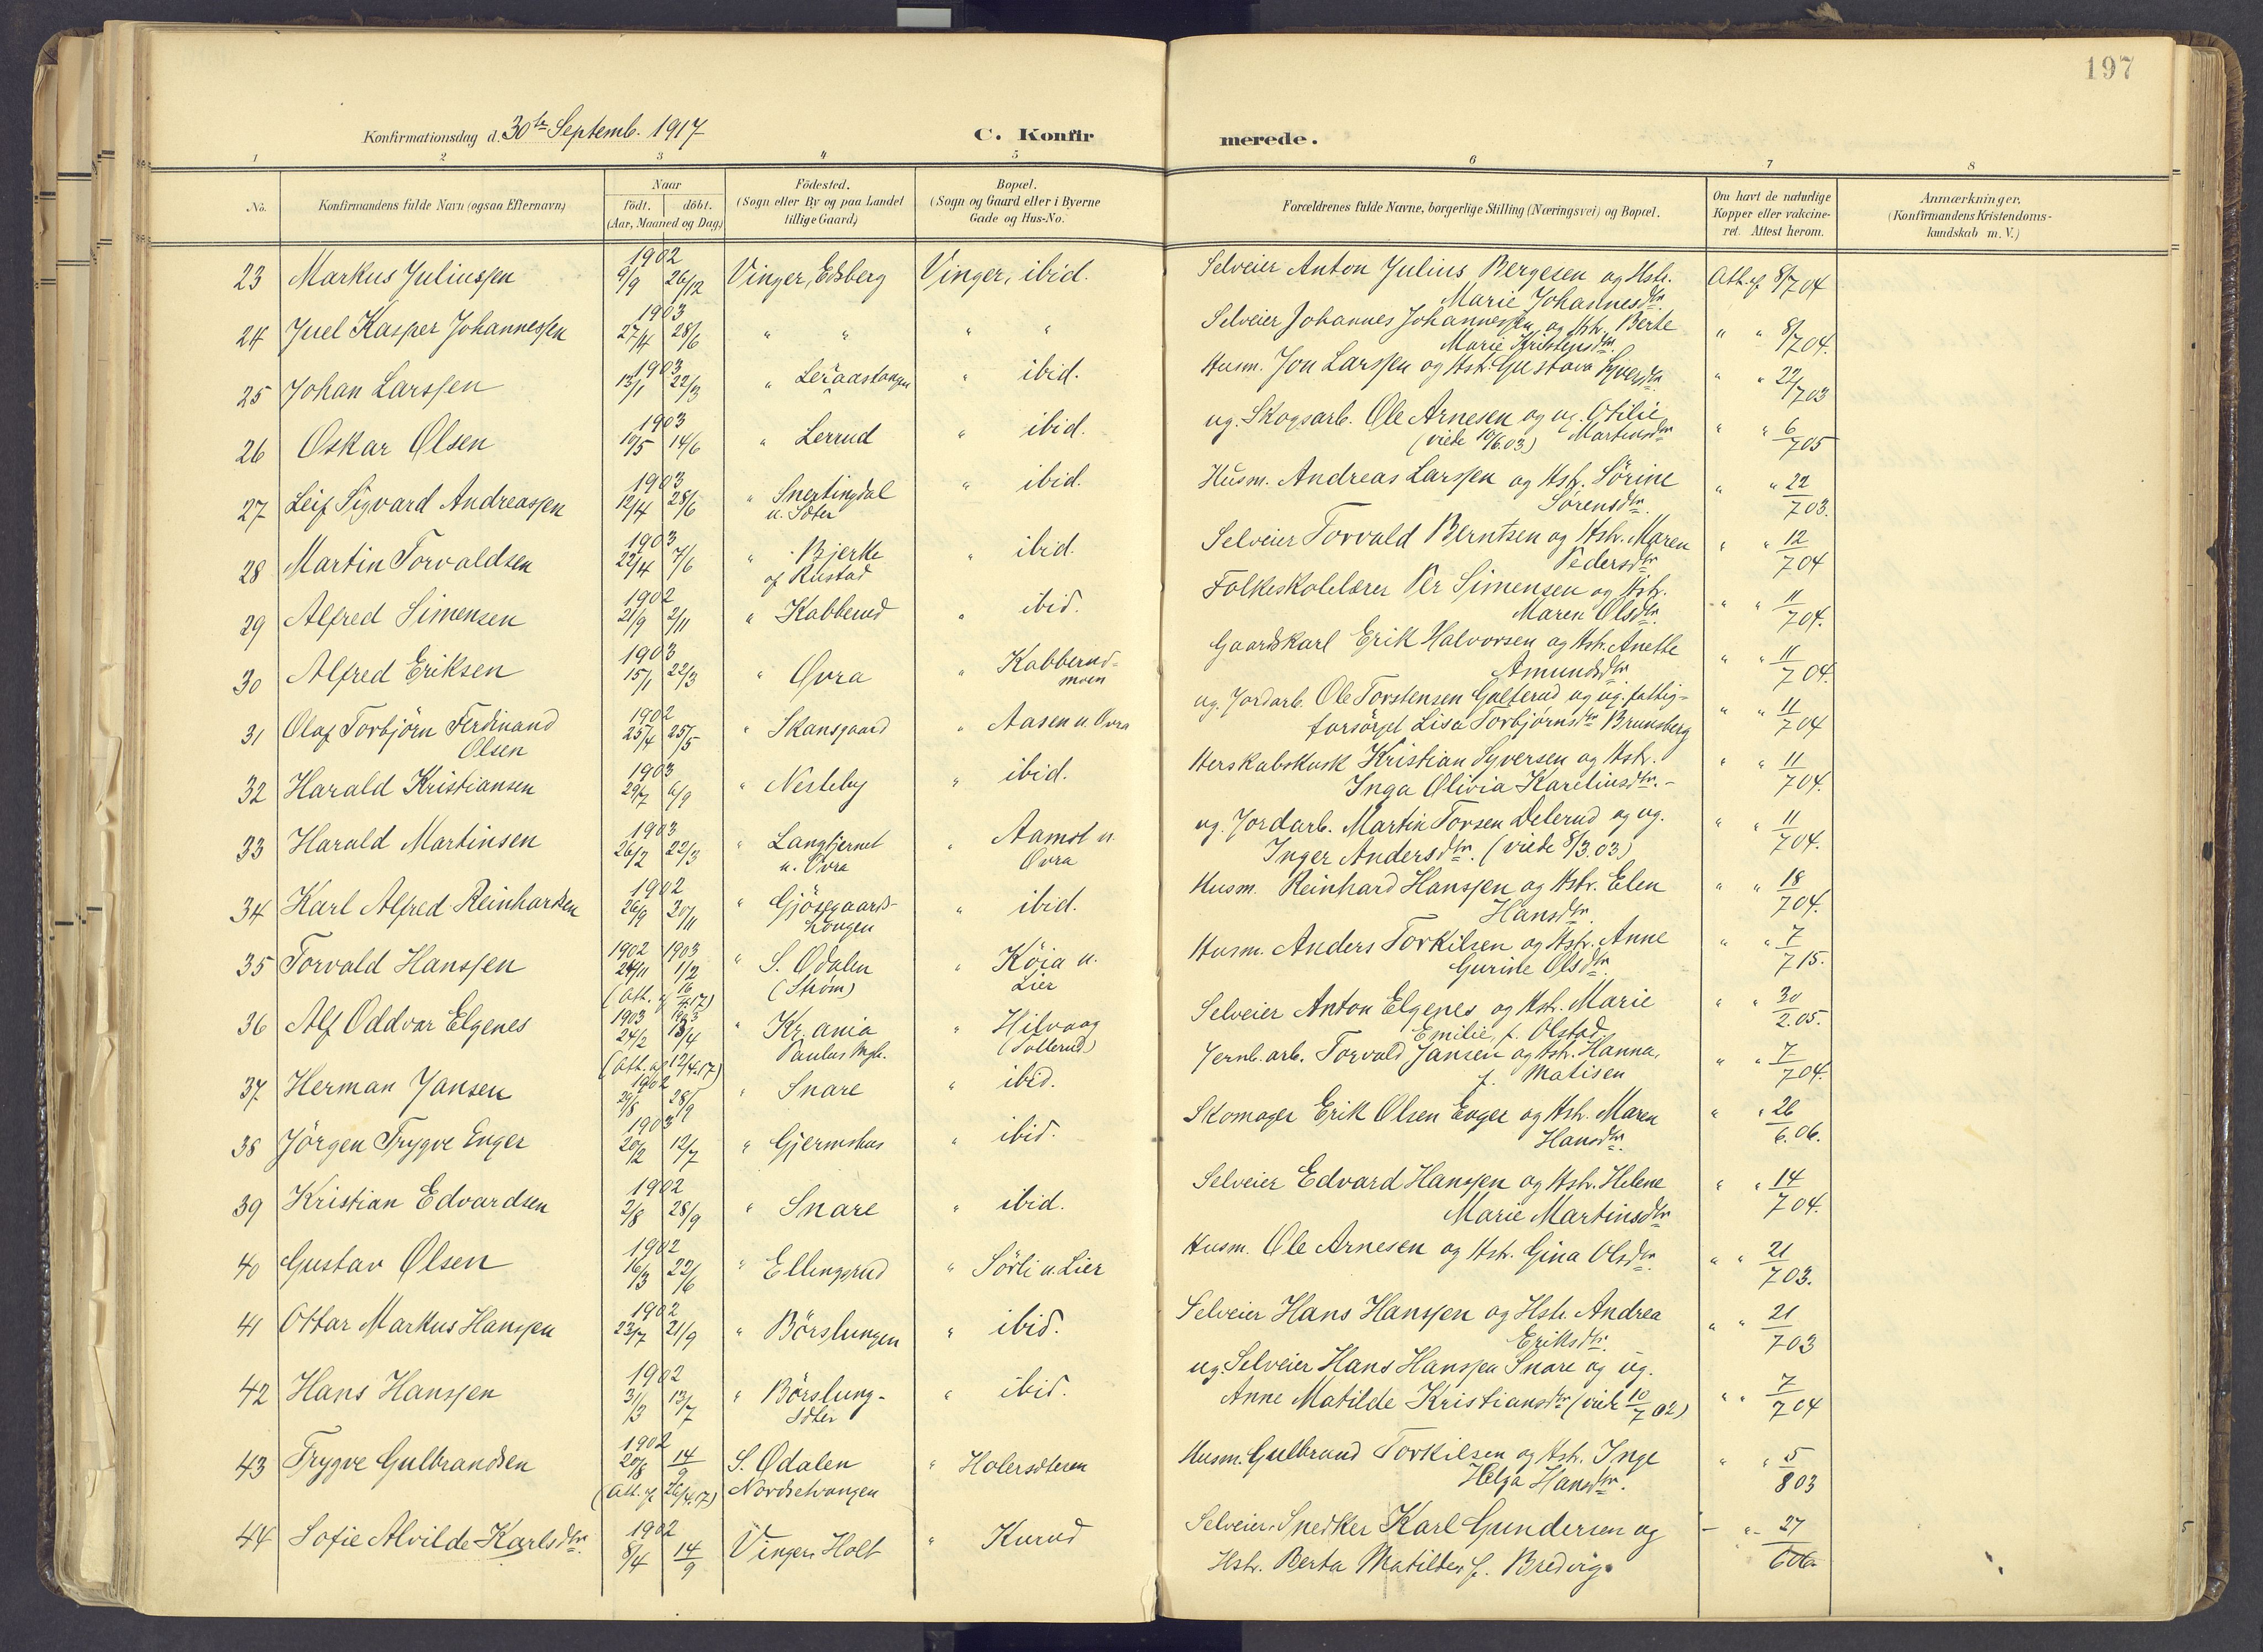 197
Konfirmationsdag d. 30te Septemb. 1917
C. Konfir merede.
1 2 3 4 5 6 7 8
No.
Konfirmandens fulde Navn (ogsaa Efternavn)
Naar
født. døbt.
(Aar, Maaned og Dag)
Födested.
(Sogn eller By og paa Landet
tillige Gaard)
Bopæl.
(Sogn og Gaard eller i Byerne
Gade og Hus-No.
Forældrenes fulde Navne, borgerlige Stilling (Næringsvei) og Bopæl.
Om havt de naturlige
Kopper eller vakcine-
ret. Attest herom.
Anmærkninger.
(Konfirmandens Kristendoms-
kundskab m. V.)
1902
23 Markus Juliussen 9/9 26/12 Vinger, Edsberg Vinger, ibid. Selveier Anton Julius Bergesen og Hstr. Att. af 8/7 04
Marie Johannesdtr.
1903
24 Juel Kasper Johannessen 27/4 28/6 " " " " Selveier Johannes Johannessen og Hstr. Berte " " 8/7 04.
Marie Kristensdtr.
1903
25 Johan Larssen 13/1 22/3 " Leraastangen " ibid. Husm. Jon Larssen og Hstr. Gustava Syversdtr. " " 22/7 03
1903
26 Oskar Olsen 10/5 14/6 " Lerrud " ibid. ug. Skogsarb. Ole Arnesen og ug. Otilie " " 6/7 05
(viede 10/6.03) Martinsdtr
1903
27 Leif Sigvard Andreassen 12/4 28/6 " Snertingdal " ibid. Husm. Andreas Larssen og Hstr. Sörine " " 22/7 03.
u. Sæter Sørensdtr.
1903
28 Martin Torvaldsen 22/4 7/6 " Bjerke " ibid. Selveier Torvald Berntsen og Hstr. Maren " " 12/7 04
af Rustad Pedersdtr.
1902
29 Alfred Simensen 21/9 2/11 " Kabberud " ibid. Folkeskolelærer Per Simensen og Hstr. " " 11/7 04.
Maren Olsdtr.
1903
30 Alfred Eriksen 15/1 22/3 " Øvra " Kabberud- Gaardskarl Erik Halvorsen og Hstr. Anette " " 11/7 04.
moen Amundsdtr.
1902
31 Olaf Torbjörn Ferdinand 25/4 25/5 " Skansgaard " Aasen u. Øvra ug. Jordarb. Ole Torstensen Galterud og ug. fattig- " " 11/7 04
Olsen forsörget Lisa Torbjörnsdtr Brunsberg
1903
32 Harald Kristiansen 29/7 6/9 " Nesteby " ibid. Herskabskusk Kristian Syversen og Hstr. " " 11/7 04.
Inga Olivia Kareliusdtr.-
1903
33 Harald Martinsen 26/2 22/3 " Langtjernet " Aamot u. ug. Jordarb. Martin Torsen Delerud og ug. " " 11/7 04.
u. Øvra Øvra Inger Andersdtr. (viede 8/3.03)
1902
34 Karl Alfred Reinhardsen 26/9 20/11 " Gjösegaards- " ibid. Husm. Reinhard Hanssen og Hstr. Elen " " 18/7 04.
kongen Hansdtr.
1902 1903
35 Torvald Hanssen 24/11 1/2 " S. Odalen " Köia u. Husm. Anders Torkilsen og Hstr. Anne " " 7/7 15.
(Att. af 16/4 17) (Strøm) Lier Gurine Olsdtr.
1903 1903
36 Alf Oddvar Elgenes 24/2 13/4 " Kr.ania " Hilvaag Selveier Anton Elgenes og Hstr. Marie " " 30/2.05.
(Att. af 12/4.17) Paulus Mgh. (Sollerud) Emilie, f. Olstad
1902
37 Herman Jansen 29/8 28/9 " Snare " ibid. Jernb.arb. Torvald Jansen og Hstr. Hanna, " " 7/7 04.
f. Matisen
1903
38 Jörgen Trygve Enger 20/2 12/7 " Gjermshus " ibid. Skomager Erik Olsen Enger og Hstr. Maren " " 26/6.06.
Hansdtr.
1902
39 Kristian Edvardsen 2/8 28/9 " Snare " ibid. Selveier Edvard Hanssen og Hstr. Helene " " 14/7 04.
Marie Martinsdtr
1902
40 Gustav Olsen 16/3 22/6 " Ellingsrud " Sörli u. Lier Husm. Ole Arnesen og Hstr. Gina Olsdtr. " " 21/7 03.
1902
41 Ottar Markus Hanssen 23/7 21/9 " Börslungen " ibid. Selveier Hans Hanssen og Hstr. Andrea " " 21/7 03
Eriksdtr.
1902
42 Hans Hanssen 31/3 13/7 " Börslung- " ibid. ug. Selveier Hans Hanssen Snare og ug. " " 7/7 04
Sæter Anne Matilde Kristiansdtr (viede 10/7 02)
1902
43 Trygve Gulbrandsen 20/8 14/9 S. Odalen " Holersæteren Husm. Gulbrand Torkilsen og Hstr. Inge " " 5/8 03
(Att. af 26/4.17) Nordsetvangen Helga Hansdtr.
1902
44 Sofie Alvilde Karlsdtr. 8/4 14/9 Vinger Holt " Kurud Selveier, Snedker Karl Gundersen og - " 27/6 06
Hstr. Berta Matilde, f. Bredvig.